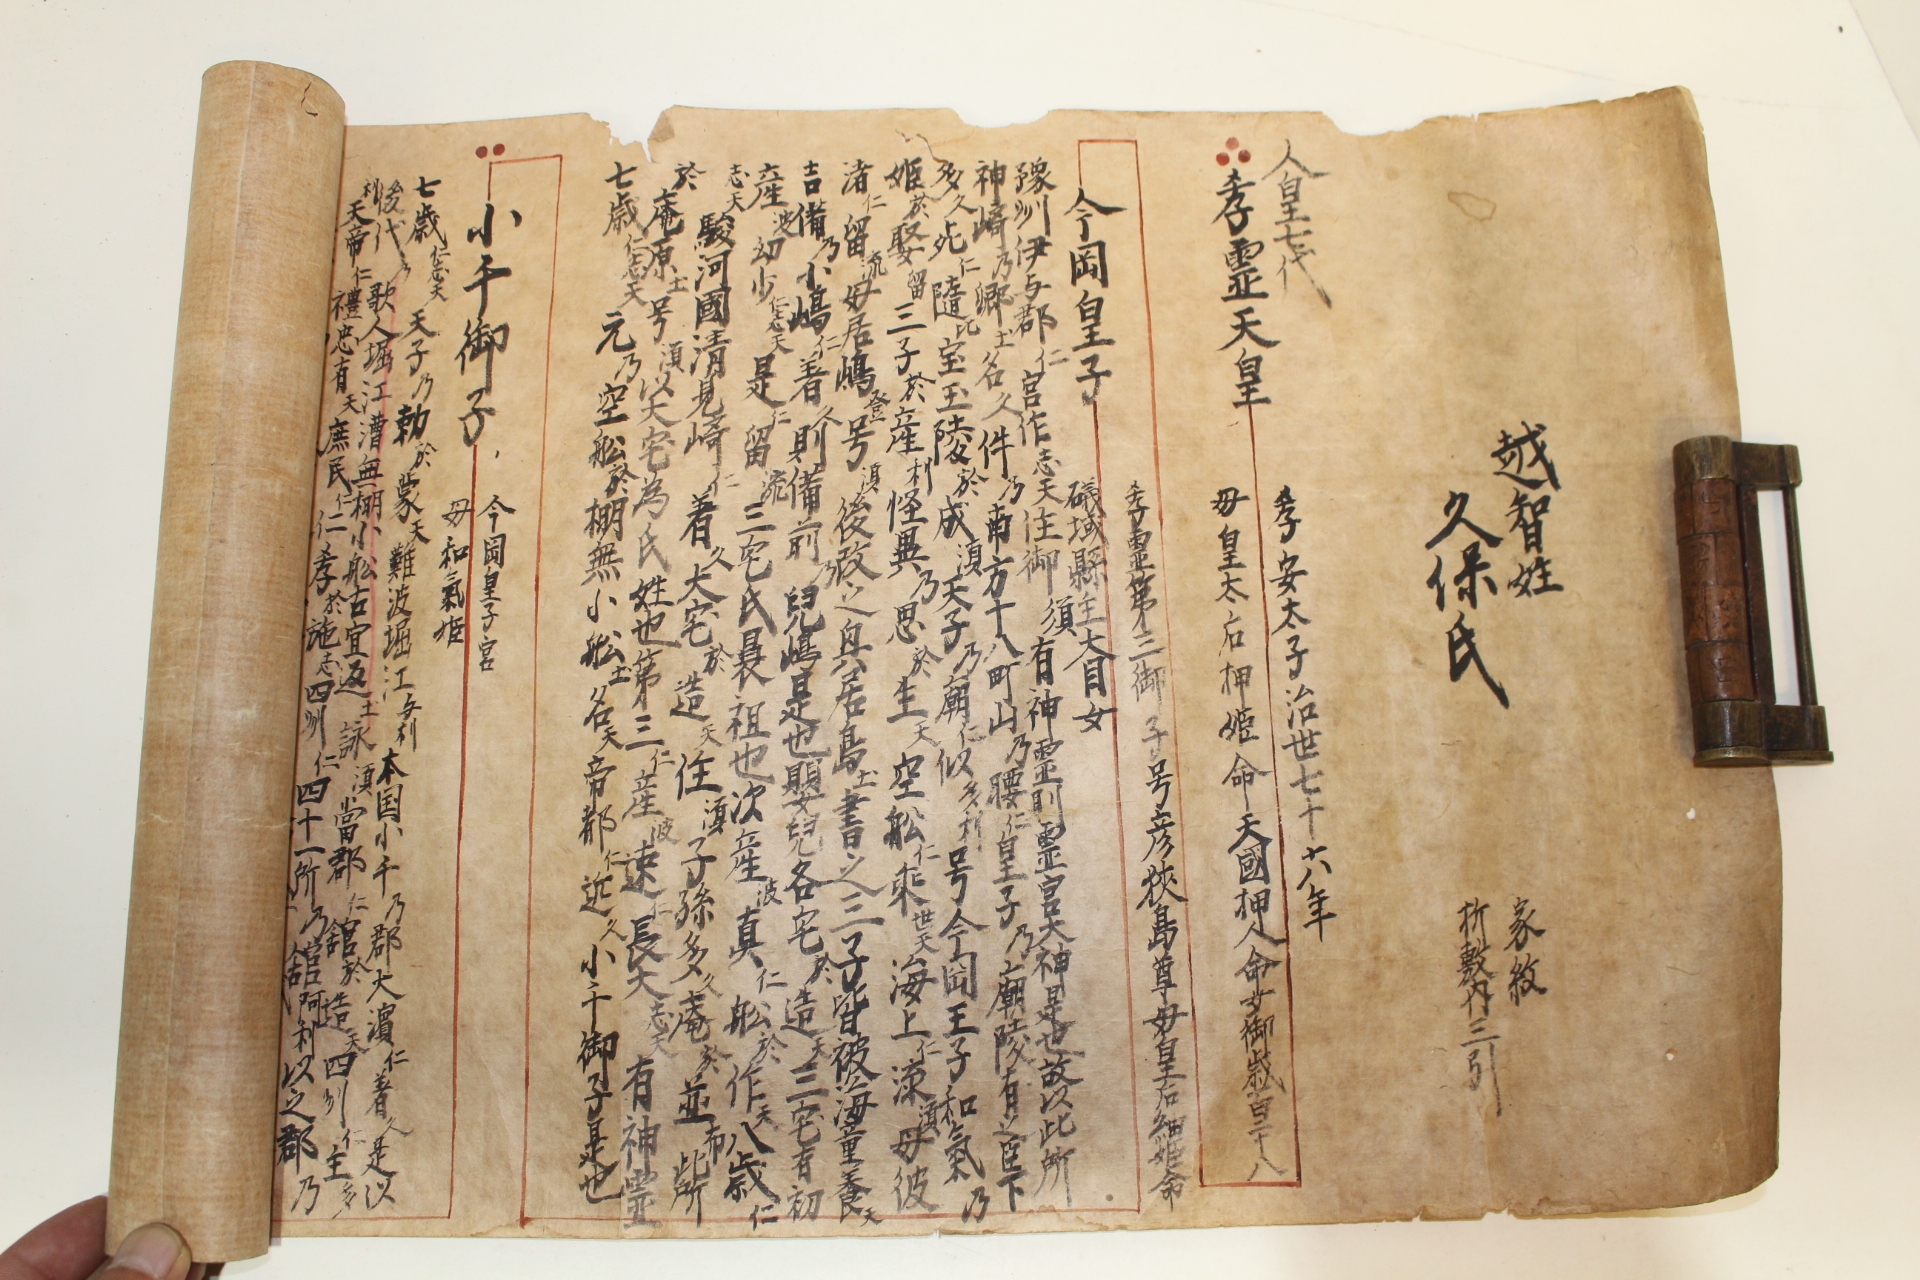 越智姓
久保氏
家紋
折敷内三引
人皇七代
孝霊天皇
孝安太子治世七十六年
母皇太后押姫命天國押人命女御歳百二十八
孝霊第三御子号彦狭島尊母皇后細姫命
今岡皇子
磯城縣主大目女
豫州伊与郡仁宮作志天住御須有神霊則霊宮大神是也故以此所
神崎乃郷士名久件乃南方十八町山乃腰仁皇子乃廟陵有之臣下
多久死仁隨比宝玉陵於成湏天子乃廟仁似多利号今岡王子和氣乃
姫於娶留三子於産利怪異乃思於生天空舩仁乘世天海上仁漂湏母彼
渚仁留流母居嶋登号湏後改之興居島士書之三子皆被海童養天
吉備乃小嶋仁着久則備前乃兒嶋是也嬰兒各宅於造天三宅有初
産波幼少仁志天是仁留流三宅氏曩祖也次産波真仁舩於作天八歳仁
志天駿河國清見崎仁着久大宅於造天住湏子孫多久庵於並布此所
於庵原士号湏以大宅為氏姓也第三仁産波速仁長大志天有神霊
七歳仁志天元乃空舩於棚無小舩士名天帝都仁近久小千御子是也
小千御子
今岡皇子宮
母和氣姫
七歳仁志天天子乃勅於蒙天難波堀江与利本国小千乃郡大濵仁着久是以
後代乃歌人堀江漕無棚小舩古宜返士詠湏當郡仁舘於造天四州仁主多
利天帝仁禮忠有天庶民仁仁孝於施志四州仁四十一所乃舘阿利以之郡乃